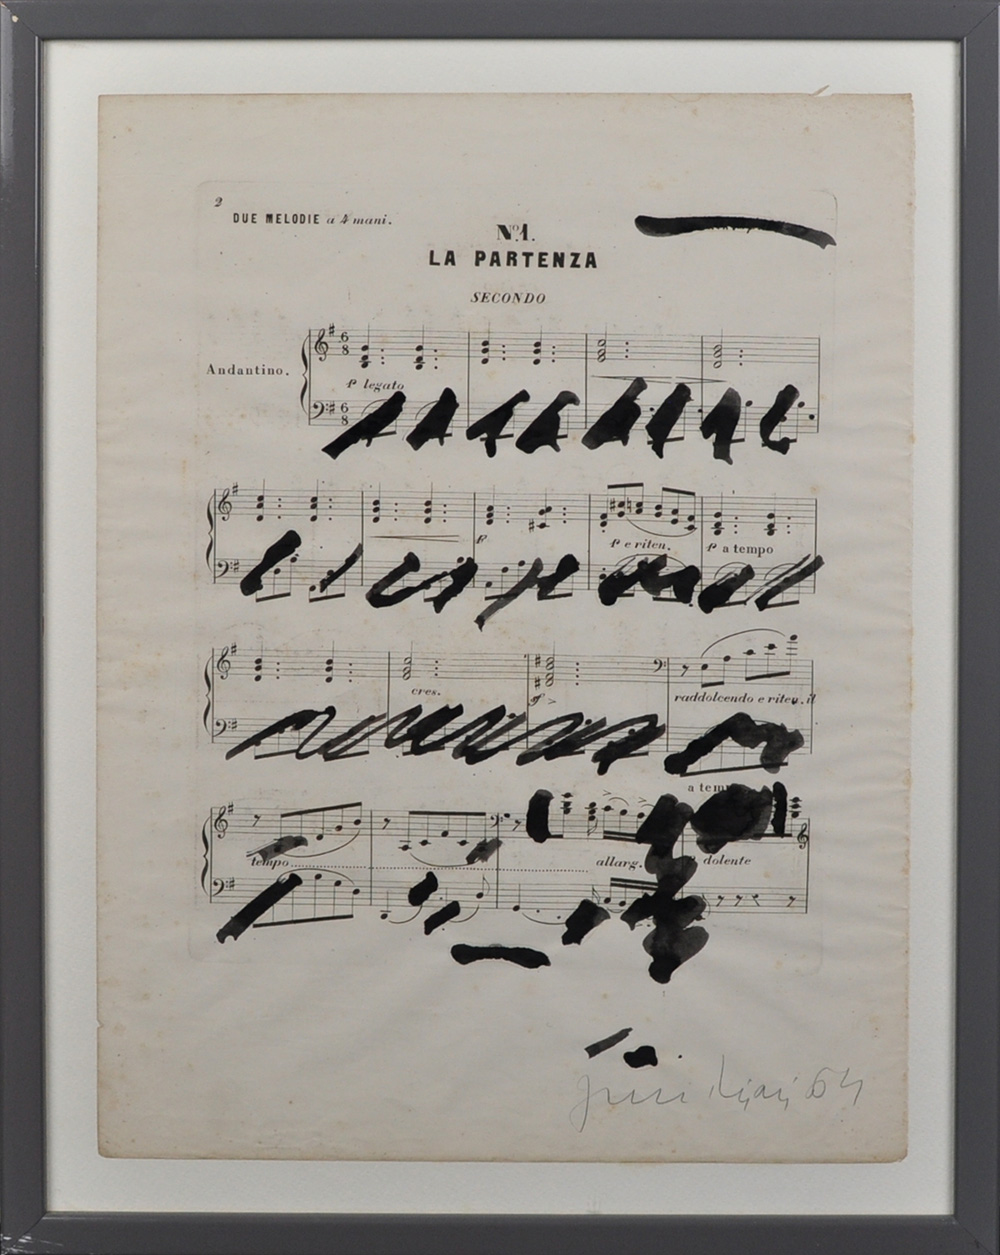 2
DUE MELODIE a 4 mani.
Nº1.
LA PARTENZA
SECONDO
Andantino.
6 8
P legato
6 8
P
P e riten.
P a tempo
cres.
sf
raddolcendo e riten. il
a tem
tempo
allarg.
P dolente
64